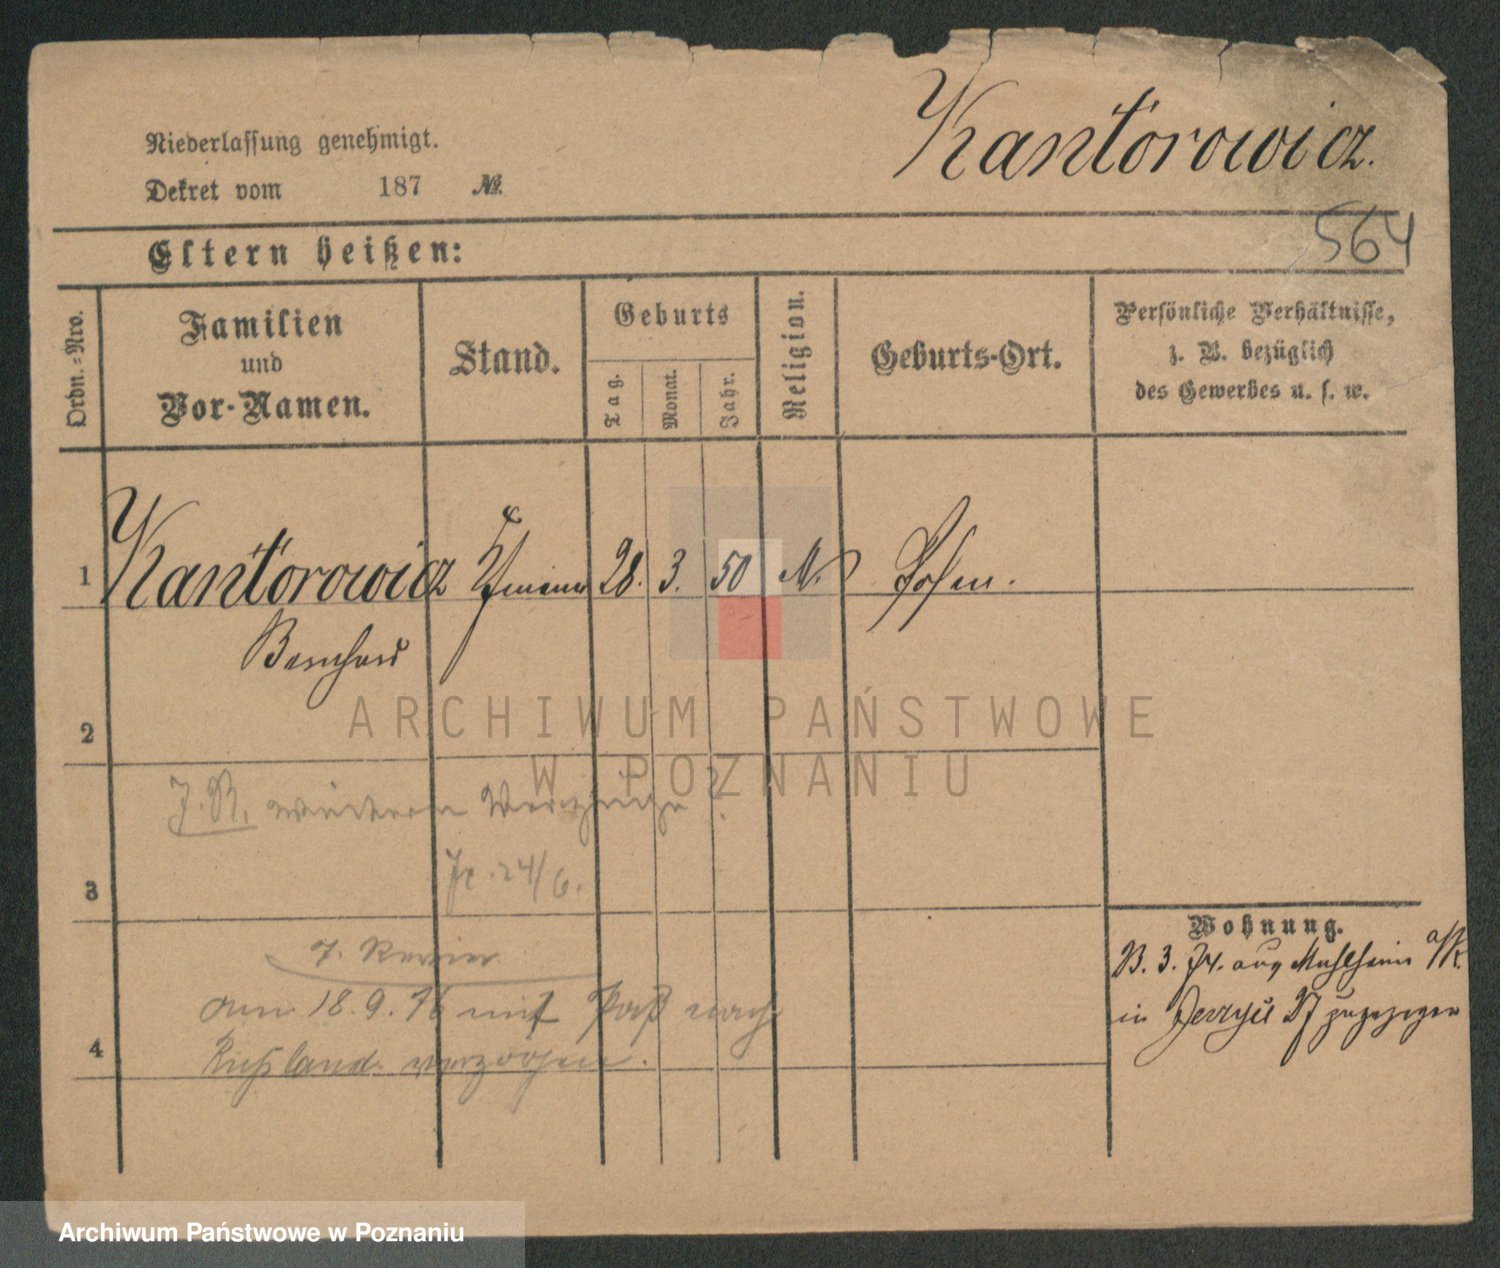 Kantorowicz.
Niederlassung genehmigt.
Dekret vom 187 №
564
Eltern heißen:
Ordn.=Nro.
Familien
und
Vor-Namen.
Stand.
Geburts
Tag.
Monat.
Jahr.
Religion.
Geburts-Ort.
Persönliche Verhältnisse,
z. B. bezüglich
des Gewerbes u. s. w.
1 Kantorowicz 28. 3. 50 Posen.
Bernhard
2
ARCHIWUM PAŃSTWOWE
W POZNANIU
J. R.
24/6.
3
7. Revier
am 18. 9. 76 mit Paß nach
Rußland verzogen.
4
Wohnung.
B. 3. 74. aus Mühlheim a/R.
in Jerzyce 27 zugezogen
Archiwum Państwowe w Poznaniu